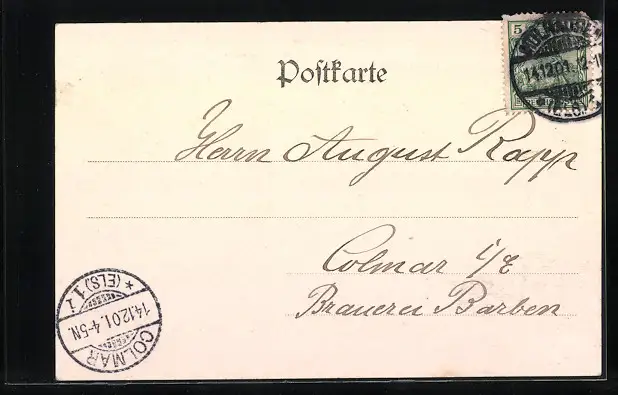 Postkarte
5
MÜLHAUSEN
14.12.01. 12-1N
*(ELS)1
Herrn August Rapp
Colmar i/E
Brauerei Barben
COLMAR
14.12.01. 4-5N.
*(ELS)1 i